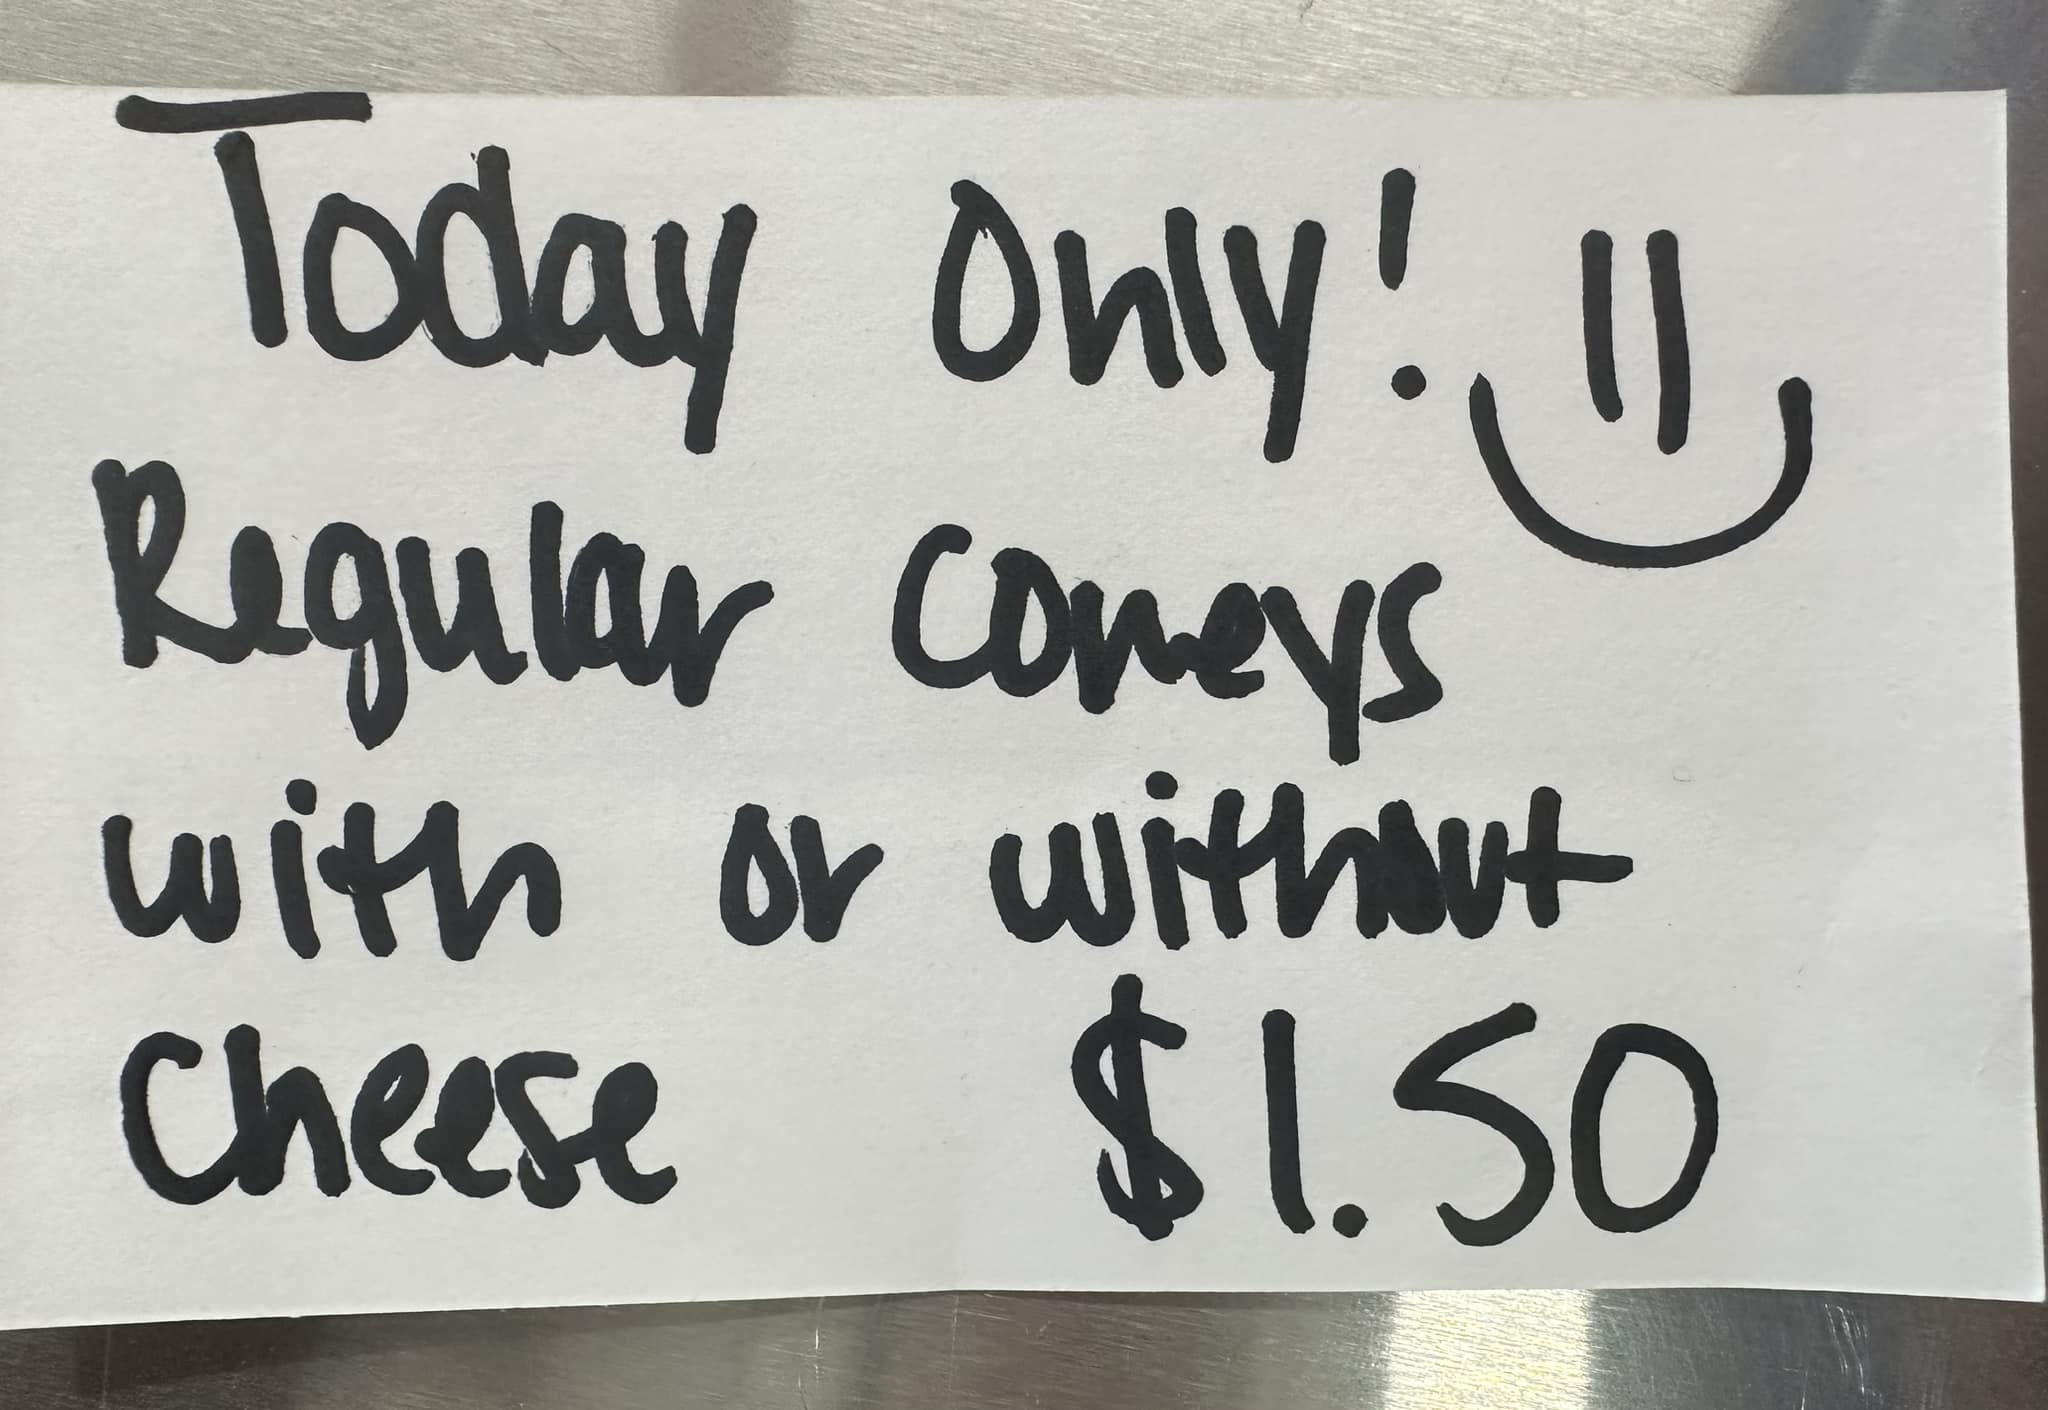 Today Only!
Regular coneys
with or without
cheese $1.50